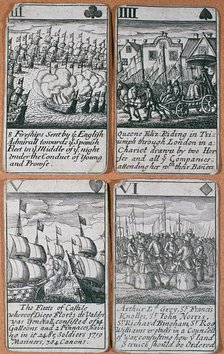 III
8 Fireships Sent by yᵉ English
Admirall towards yᵉ Spanish
Fleet in yᵉ Middle of yᵉ night
Under the Conduct of Young
and Prowse.
IIII
Queene Eliz. Riding in Tri=
umph through London in a
Chariot drawn by two Hor
ses and all yᵉ Companies
attending her wᵗʰ their Baners
V
The Fleete of Castile
whereof Diego Flores de Valdes
was Generall, consisted of
Galleons and 2 Pinnaces,
Soldiers 1719
Mariners, 384 Canons.
VI
Arthur Lᵈ Grey, Sʳ Francis
Knolles, Sʳ Iohn Norris,
Sʳ Richard Bingham, Sʳ
in a Councel
of war, consulting how yᵉ
land Service should be Ordered